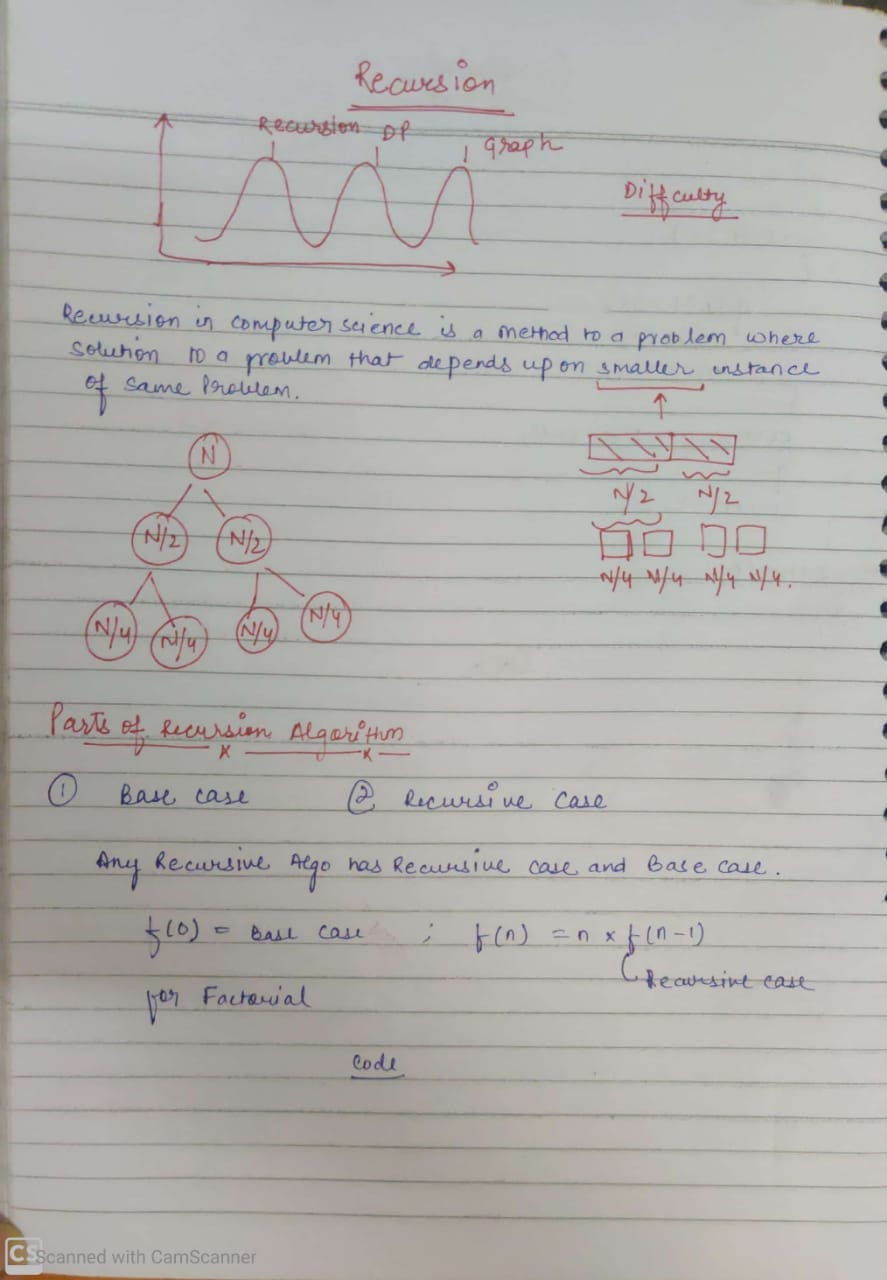 Recursion
Recursion DP Graph
Difficulty
Recursion in computer science is a method to a problem where
solution to a problem that depends upon smaller instance
of same Problem.
N
N/2 N/2
N/2 N/2
N/4 N/4 N/4 N/4.
N/4 N/4 N/4 N/4
Parts of Recursion Algorithm
① Base case ② Recursive Case
Any Recursive Algo has Recursive case and Base case.
f(0) = Base case ; f(n) = n x f(n-1)
Recursive case
for Factorial
Code
CS Scanned with CamScanner